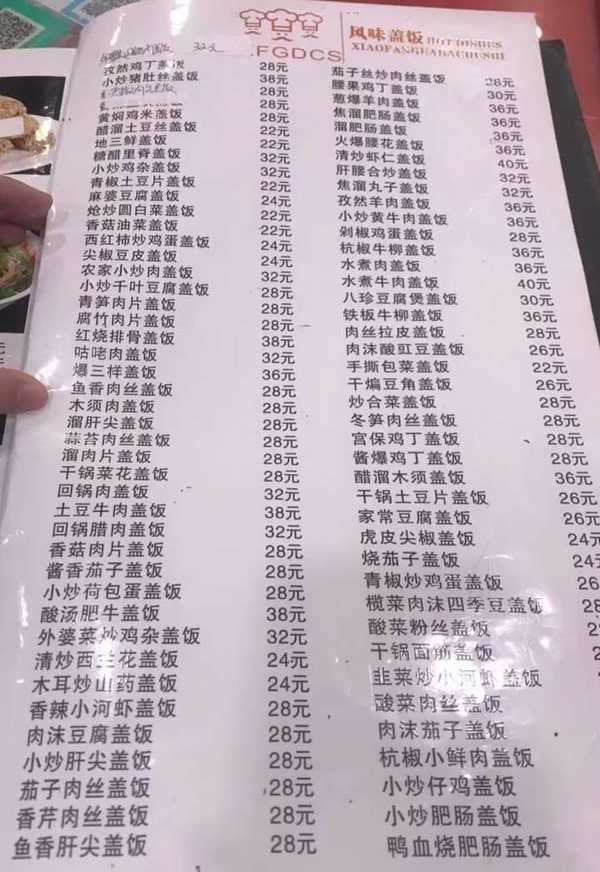 FGDCS
风味盖饭 HOT DISHES
XIAOFANGFADACHUSHI
32元
孜然鸡丁盖饭 28元
小炒猪肚丝盖饭 38元
28元
黄焖鸡米盖饭 28元
醋溜土豆丝盖饭 22元
地三鲜盖饭 22元
糖醋里脊盖饭 32元
小炒鸡杂盖饭 32元
青椒土豆片盖饭 22元
麻婆豆腐盖饭 24元
炝炒圆白菜盖饭 22元
香菇油菜盖饭 22元
西红柿炒鸡蛋盖饭 24元
尖椒豆皮盖饭 24元
农家小炒肉盖饭 32元
小炒千叶豆腐盖饭 28元
青笋肉片盖饭 28元
腐竹肉片盖饭 28元
红烧排骨盖饭 38元
咕咾肉盖饭 32元
爆三样盖饭 36元
鱼香肉丝盖饭 28元
木须肉盖饭 28元
溜肝尖盖饭 28元
蒜苔肉丝盖饭 28元
溜肉片盖饭 28元
干锅菜花盖饭 28元
回锅肉盖饭 32元
土豆牛肉盖饭 38元
回锅腊肉盖饭 32元
香菇肉片盖饭 28元
酱香茄子盖饭 28元
小炒荷包蛋盖饭 28元
酸汤肥牛盖饭 38元
外婆菜炒鸡杂盖饭 32元
清炒西兰花盖饭 24元
木耳炒山药盖饭 24元
香辣小河虾盖饭 28元
肉沫豆腐盖饭 28元
小炒肝尖盖饭 28元
茄子肉丝盖饭 28元
香芹肉丝盖饭 28元
鱼香肝尖盖饭 28元
茄子丝炒肉丝盖饭 28元
腰果鸡丁盖饭 30元
葱爆羊肉盖饭 36元
焦溜肥肠盖饭 36元
溜肥肠盖饭 36元
火爆腰花盖饭 36元
清炒虾仁盖饭 40元
肝腰合炒盖饭 32元
焦溜丸子盖饭 32元
孜然羊肉盖饭 36元
小炒黄牛肉盖饭 36元
剁椒鸡蛋盖饭 28元
杭椒牛柳盖饭 36元
水煮肉盖饭 36元
水煮牛肉盖饭 40元
八珍豆腐煲盖饭 30元
铁板牛柳盖饭 36元
肉丝拉皮盖饭 28元
肉沫酸豇豆盖饭 26元
手撕包菜盖饭 22元
干煸豆角盖饭 26元
炒合菜盖饭 28元
冬笋肉丝盖饭 28元
宫保鸡丁盖饭 28元
酱爆鸡丁盖饭 28元
醋溜木须盖饭 36元
干锅土豆片盖饭 26元
家常豆腐盖饭 26元
虎皮尖椒盖饭 24元
烧茄子盖饭 24元
青椒炒鸡蛋盖饭 26元
榄菜肉沫四季豆盖饭 28
酸菜粉丝盖饭 2
干锅面筋盖饭
韭菜炒小河虾盖饭
酸菜肉丝盖饭
肉沫茄子盖饭
杭椒小鲜肉盖饭
小炒仔鸡盖饭
小炒肥肠盖饭
鸭血烧肥肠盖饭